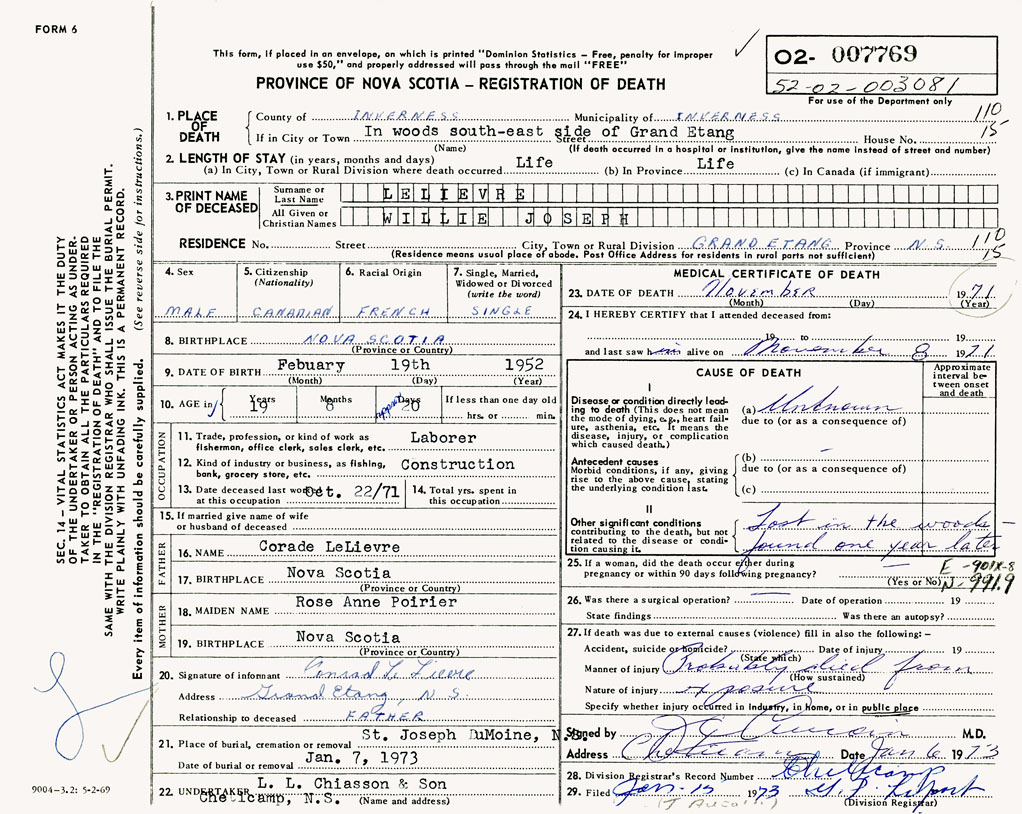 FORM 6
This form, if placed in an envelope, on which is printed "Dominion Statistics – Free, penalty for improper
use $50," and properly addressed will pass through the mail "FREE"
PROVINCE OF NOVA SCOTIA – REGISTRATION OF DEATH
02- 007769
52-02-003081
For use of the Department only
1. PLACE OF DEATH
County of INVERNESS Municipality of INVERNESS 110
If in City or Town In woods south-east side of Grand Etang Street House No. 15
(Name) (If death occurred in a hospital or institution, give the name instead of street and number)
2. LENGTH OF STAY (in years, months and days)
(a) In City, Town or Rural Division where death occurred Life (b) In Province Life (c) In Canada (if immigrant)
3. PRINT NAME OF DECEASED
Surname or Last Name LELIEVRE
All Given or Christian Names WILLIE JOSEPH
RESIDENCE No. Street City, Town or Rural Division GRAND ETANG Province N.S. 110
15
(Residence means usual place of abode. Post Office Address for residents in rural parts not sufficient)
4. Sex
MALE
5. Citizenship
(Nationality)
CANADIAN
6. Racial Origin
FRENCH
7. Single, Married,
Widowed or Divorced
(write the word)
SINGLE
8. BIRTHPLACE NOVA SCOTIA
(Province or Country)
9. DATE OF BIRTH Febuary 19th 1952
(Month) (Day) (Year)
10. AGE in Years Months Days If less than one day old
19 8 approx 20 hrs. or min.
OCCUPATION
11. Trade, profession, or kind of work as
fisherman, office clerk, sales clerk, etc. Laborer
12. Kind of industry or business, as fishing,
bank, grocery store, etc. Construction
13. Date deceased last worked
at this occupation Oct. 22/71
14. Total yrs. spent in
this occupation
15. If married give name of wife
or husband of deceased
FATHER
16. NAME Corade LeLievre
17. BIRTHPLACE Nova Scotia
(Province or Country)
MOTHER
18. MAIDEN NAME Rose Anne Poirier
19. BIRTHPLACE Nova Scotia
(Province or Country)
20. Signature of informant Conrad Le Lievre
Address Grand Etang, N.S.
Relationship to deceased FATHER
21. Place of burial, cremation or removal St. Joseph DuMoine, N.S.
Date of burial or removal Jan. 7, 1973
22. UNDERTAKER L. L. Chiasson & Son
Cheticamp, N.S. (Name and address)
MEDICAL CERTIFICATE OF DEATH
23. DATE OF DEATH November 1971
(Month) (Day) (Year)
24. I HEREBY CERTIFY that I attended deceased from:
19 to 19
and last saw him alive on November 8 1971
CAUSE OF DEATH
Approximate
interval be-
tween onset
and death
I
Disease or condition directly lead-
ing to death (This does not mean
the mode of dying, e.g., heart fail-
ure, asthenia, etc. It means the
disease, injury, or complication
which caused death.)
(a) Unknown
due to (or as a consequence of)
Antecedent causes
Morbid conditions, if any, giving
rise to the above cause, stating
the underlying condition last.
(b) –
due to (or as a consequence of)
(c)
II
Other significant conditions
contributing to the death, but not
related to the disease or condi-
tion causing it.
Lost in the woods –
found one year later
25. If a woman, did the death occur either during
pregnancy or within 90 days following pregnancy? (Yes or No)
E-901X-8
N-991.9
26. Was there a surgical operation? Date of operation 19
State findings Was there an autopsy?
27. If death was due to external causes (violence) fill in also the following: –
Accident, suicide or homicide? Date of injury 19
(State which)
Manner of injury Probably died from
(How sustained)
Nature of injury exposure
Specify whether injury occurred in industry, in home, or in public place
Signed by M.D.
Address Cheticamp Date Jan 6 1973
28. Division Registrar's Record Number Cheticamp
29. Filed Jan. 12 1973
(Division Registrar)
SEC. 14 – VITAL STATISTICS ACT MAKES IT THE DUTY
OF THE UNDERTAKER OR PERSON ACTING AS UNDER-
TAKER TO OBTAIN ALL THE PARTICULARS REQUIRED
IN THE "REGISTRATION OF DEATH" AND TO FILE THE
SAME WITH THE DIVISION REGISTRAR WHO SHALL ISSUE THE BURIAL PERMIT.
WRITE PLAINLY WITH UNFADING INK. THIS IS A PERMANENT RECORD.
Every item of information should be carefully supplied. (See reverse side for instructions.)
9004-3.2: 5-2-69